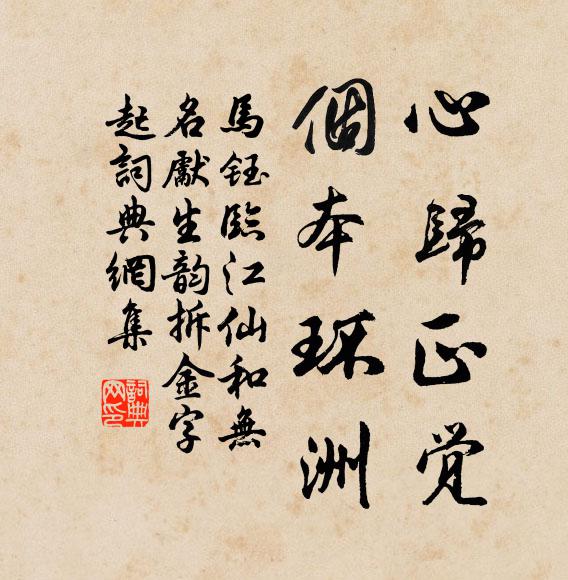 心歸正覺
個本环洲
馬鈺臨江仙和無
名獻生韵拆金字
起詞典網集
詞典
网印